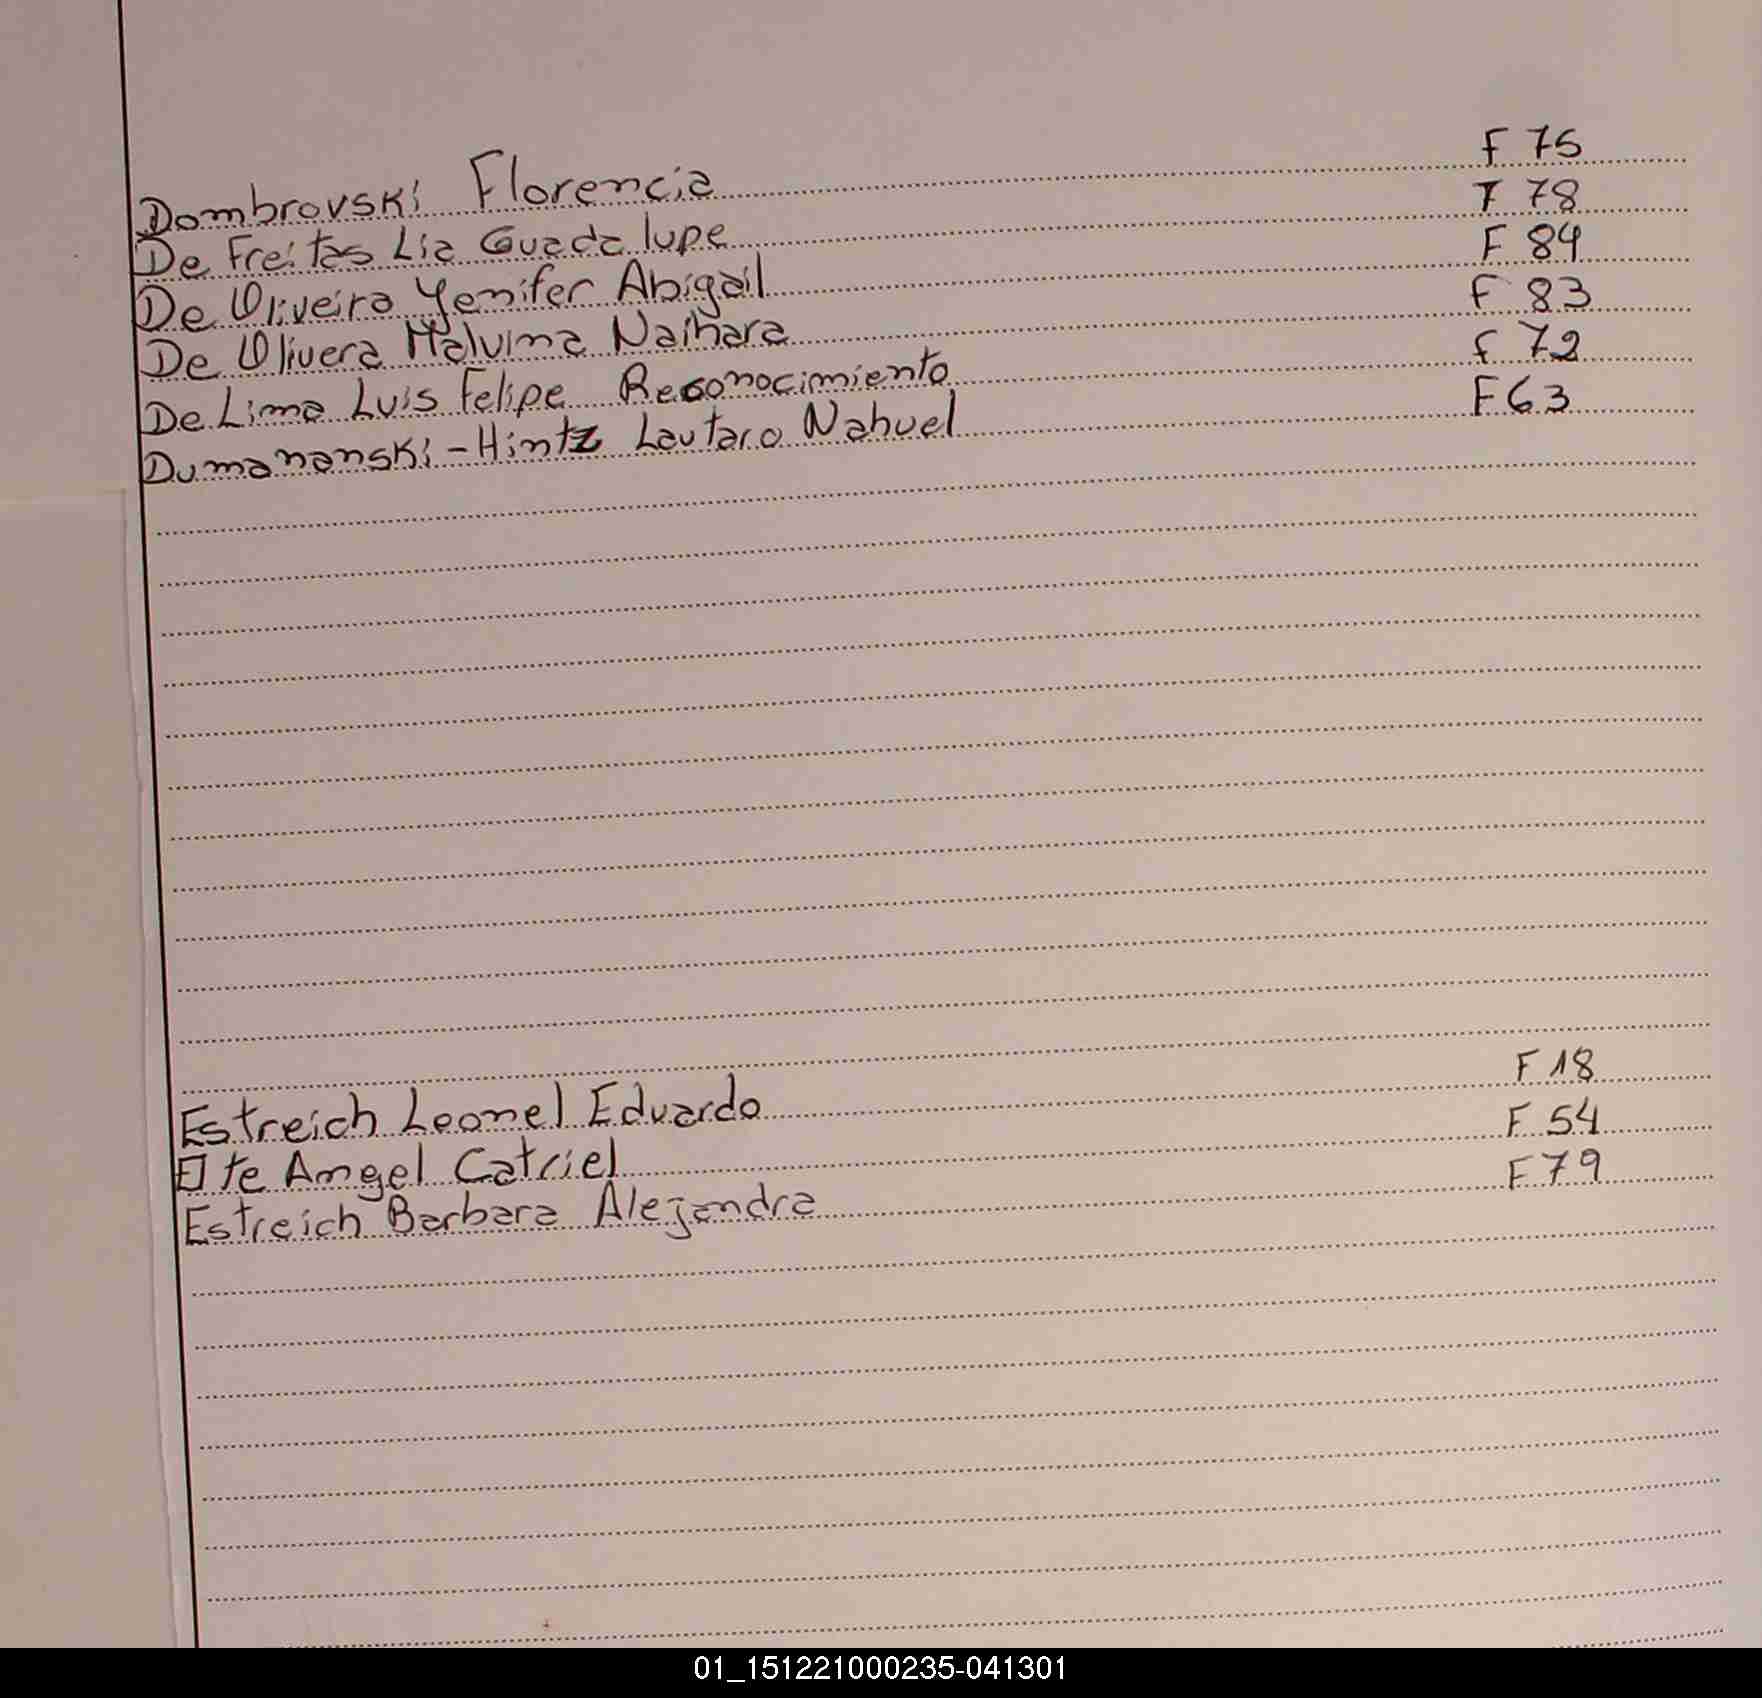 Dombrovski Florencia F 75
De Freitas Lia Guadalupe F 78
De Oliveira Yenifer Abigail F 84
De Olivera Malvina Naihara F 83
De Lima Luis Felipe Reconocimiento F 72
Dumananski - Hintz Lautaro Nahuel F 63
Estreich Leonel Eduardo F 18
Angel Catriel F 54
Estreich Barbara Alejandra F 79
01_151221000235-041301